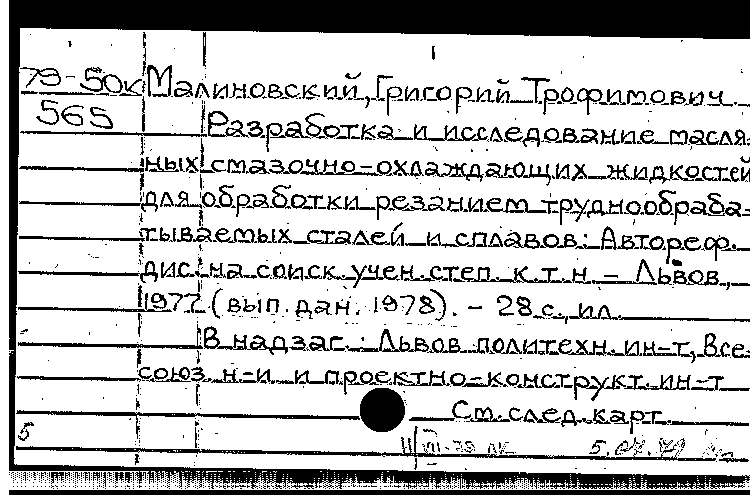 79-50к Малиновский, Григорий Трофимович
565 Разработка и исследование масля-
ных смазочно-охлаждающих жидкостей
для обработки резанием труднообраба-
тываемых сталей и сплавов: Автореф.
дис. на соиск. учен. степ. к.т.н. - Львов,
1977 (вып. дан. 1978). - 28 с., ил.
В надзаг.: Львов. политехн. ин-т, Все-
союз. н-и и проектно-конструкт. ин-т
См. след. карт.
5